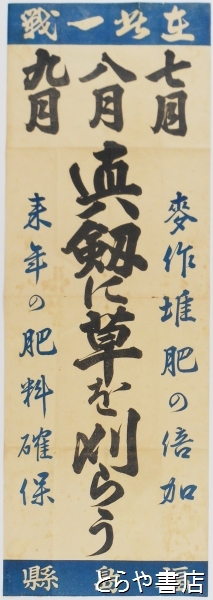 在此一戰
七月
八月
九月
真剱に草を刈らう
麥作堆肥の倍加
来年の肥料確保
福島縣
とらや書店